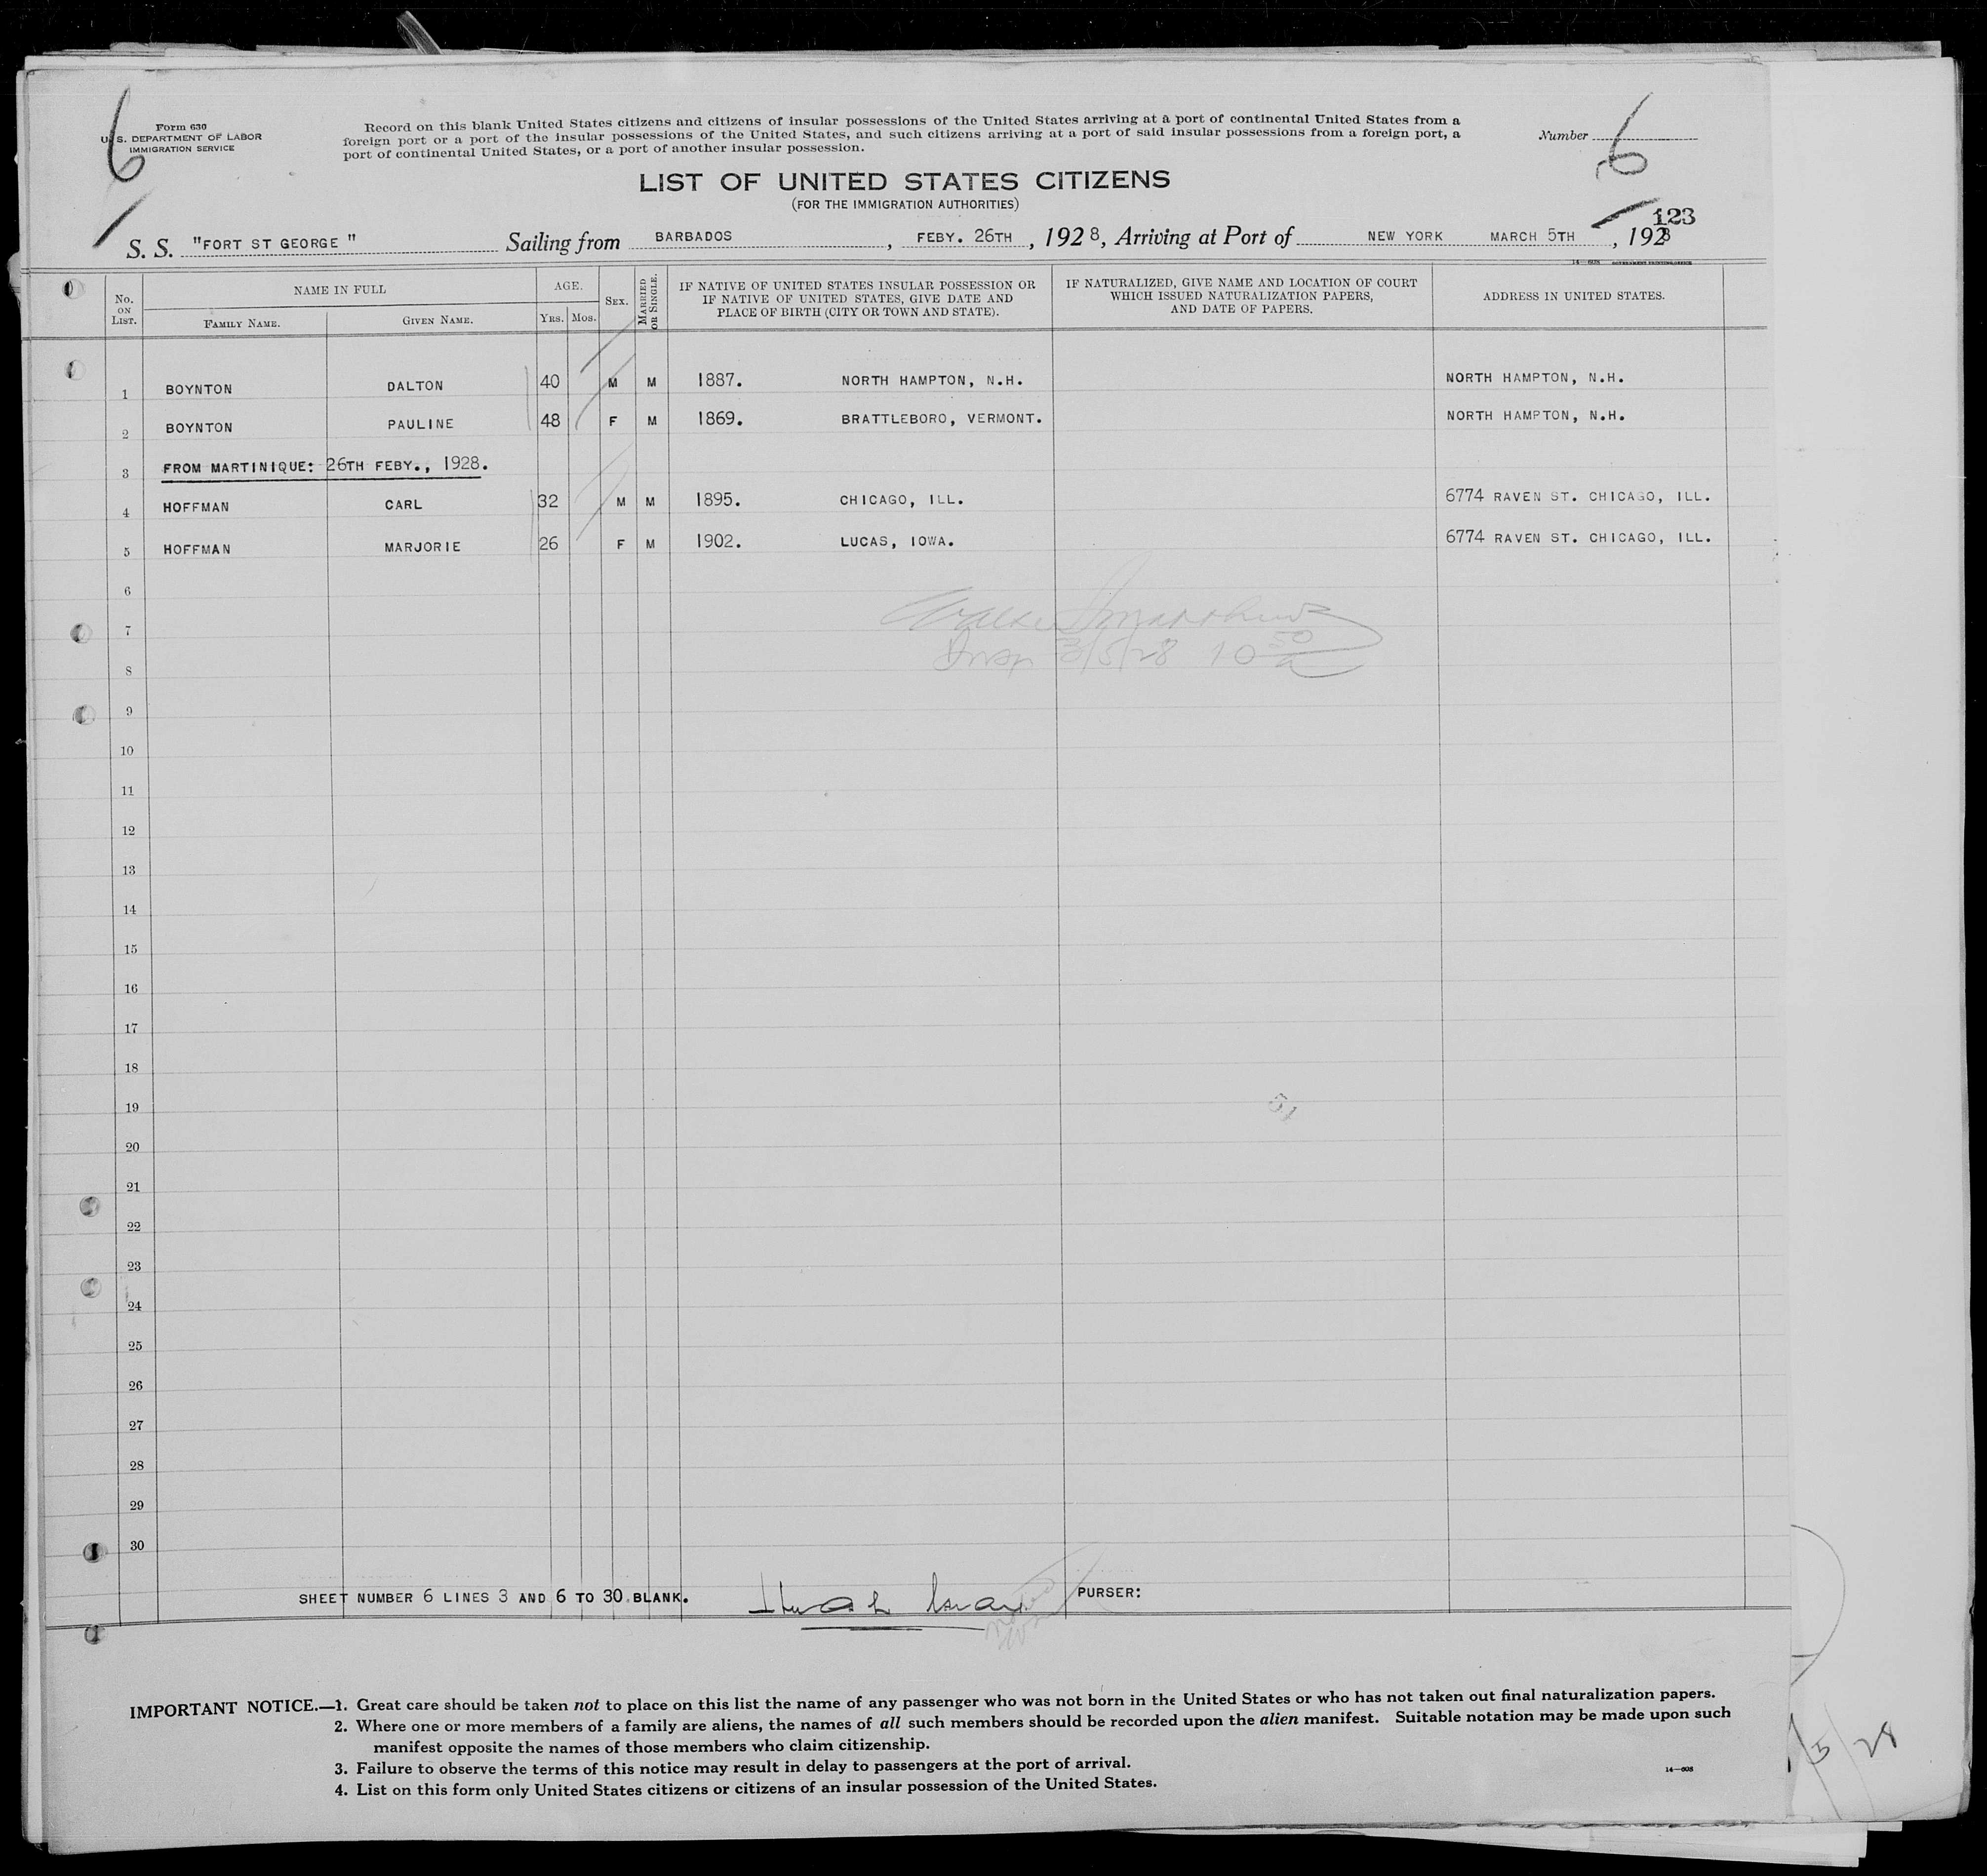 6
Form 630
U. S. DEPARTMENT OF LABOR
IMMIGRATION SERVICE
Record on this blank United States citizens and citizens of insular possessions of the United States arriving at a port of continental United States from a
foreign port or a port of the insular possessions of the United States, and such citizens arriving at a port of said insular possessions from a foreign port, a
port of continental United States, or a port of another insular possession.
Number 6
LIST OF UNITED STATES CITIZENS
(FOR THE IMMIGRATION AUTHORITIES)
123
S. S. "FORT ST GEORGE " Sailing from BARBADOS , FEBY. 26TH , 1928, Arriving at Port of NEW YORK MARCH 5TH , 1928
14—608 GOVERNMENT PRINTING OFFICE
No. ON LIST. NAME IN FULL AGE. SEX. MARRIED OR SINGLE. IF NATIVE OF UNITED STATES INSULAR POSSESSION OR IF NATIVE OF UNITED STATES, GIVE DATE AND PLACE OF BIRTH (CITY OR TOWN AND STATE). IF NATURALIZED, GIVE NAME AND LOCATION OF COURT WHICH ISSUED NATURALIZATION PAPERS, AND DATE OF PAPERS. ADDRESS IN UNITED STATES.
FAMILY NAME. GIVEN NAME. YRS. MOS.
1 BOYNTON DALTON 40 M M 1887. NORTH HAMPTON, N.H. NORTH HAMPTON, N.H.
2 BOYNTON PAULINE 48 F M 1869. BRATTLEBORO, VERMONT. NORTH HAMPTON, N.H.
3 FROM MARTINIQUE: 26TH FEBY., 1928.
4 HOFFMAN CARL 32 M M 1895. CHICAGO, ILL. 6774 RAVEN ST. CHICAGO, ILL.
5 HOFFMAN MARJORIE 26 F M 1902. LUCAS, IOWA. 6774 RAVEN ST. CHICAGO, ILL.
6
7
8 Insp 3/5/28 10 50 a
9
10
11
12
13
14
15
16
17
18
19
20
21
22
23
24
25
26
27
28
29
30
SHEET NUMBER 6 LINES 3 AND 6 TO 30 BLANK. PURSER:
IMPORTANT NOTICE.—1. Great care should be taken not to place on this list the name of any passenger who was not born in the United States or who has not taken out final naturalization papers.
2. Where one or more members of a family are aliens, the names of all such members should be recorded upon the alien manifest. Suitable notation may be made upon such
manifest opposite the names of those members who claim citizenship.
3. Failure to observe the terms of this notice may result in delay to passengers at the port of arrival.
4. List on this form only United States citizens or citizens of an insular possession of the United States.
14—608
/5/28